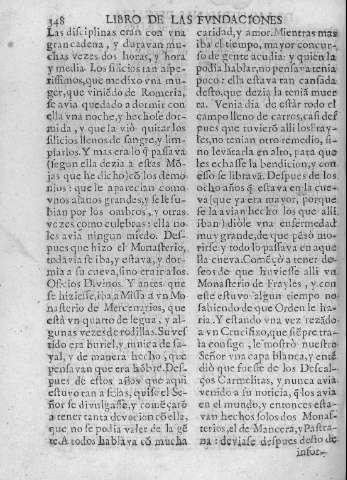 348 LIBRO DE LAS FVNDACIONES
Las disciplinas eran con vna
gran cadena, y durauan mu-
chas vezes dos horas, y hora
y media. Los silicios tan aspe-
rissimos, que me dixo vna mu-
ger, que viniẽdo de Romeria,
se auia quedado a dormir con
ella vna noche, y hechose dor-
mida, y que la viò quitar los
silicios llenos de sangre, y lim-
piarlos. Y mas era lo q̃ passaua
(segun ella dezia a estas Mõ-
jas que he dicho) cõ los demo-
nios: que le aparecian como
vnos alanos grandes, y se le su-
bian por los ombros, y otras
vezes como culebras: ella no
les auia ningun miedo. Des-
pues que hizo el Monasterio,
todauia se iba, y estaua, y dor-
mia a su cueua, sino era ir a los
Oficios Diuinos. Y antes que
se hiziesse, iba a Missa a vn Mo-
nasterio de Mercenarios, que
està vn quarto de legua, y al-
gunas vezes de rodillas. Su ves-
tido era buriel, y tunica de sa-
yal, y de manera hecho, que
pensauan que era hõbre. Des-
pues de estos años que aqui
estuuo tan a solas, quiso el Se-
ñor se diuulgasse, y comẽçarõ
a tener tanta deuocion cõ ella,
que no se podia valer de la gẽ
te. A todos hablaua cõ mucha
caridad, y amor. Mientras mas
iba el tiempo, mayor concur-
so de gente acudia: y quien la
podia hablar, no pensaua tenia
poco: ella estaua tan cansada
desto, que dezia la tenia muer
ta. Venia dia de estàr todo el
campo lleno de carros, casi des
pues que tuuierõ alli los fray-
les, no tenian otro remedio, si-
no leuãtarla en alto, para que
les echasse la bendicion, y con
esso se libraua. Despues de los
ocho años q̃ estaua en la cue-
ua (que ya era mayor, porque
se la auian hecho los que alli
iban) diòle vna enfermedad
muy grande, de que pẽsò mo-
rirse: y todo lo passaua en aque
lla cueua. Comẽçò a tener de-
seos de que huuiesse alli vn
Monasterio de Frayles, y con
este estuuo algun tiempo no
sabiendo de que Orden le ha-
ria. Y estando vna vez rezãdo
a vn Crucifixo, que siẽpre tra-
la consigo, le mostrò nuestro
Señor vna capa blanca, y entẽ
diò que fuesse de los Descal-
ços Carmelitas, y nunca auia
venido a su noticia, q̃ los auia
en el mundo, y entonces esta-
uan hechos solos dos Monas-
terios, el de Mancera, y Pastra-
na: deuiase despues desto de
infor-